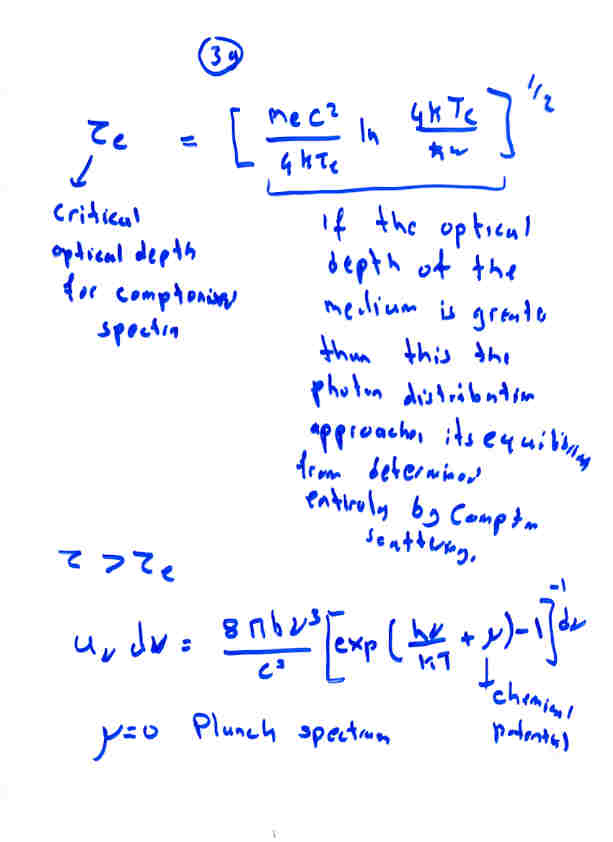 39
τe = [ mec² / 4kTe ln 4kTe / ħω ]^1/2
critical
optical depth
for comptonised
spectra
If the optical
depth of the
medium is greater
than this the
photon distribution
approaches its equilibrium
from determined
entirely by Compton
scattering.
τ > τe
uν dν = 8πhν³ / c³ [exp (hν/kT + μ) - 1]^-1 dν
chemical
potential
μ=0 Planck spectrum